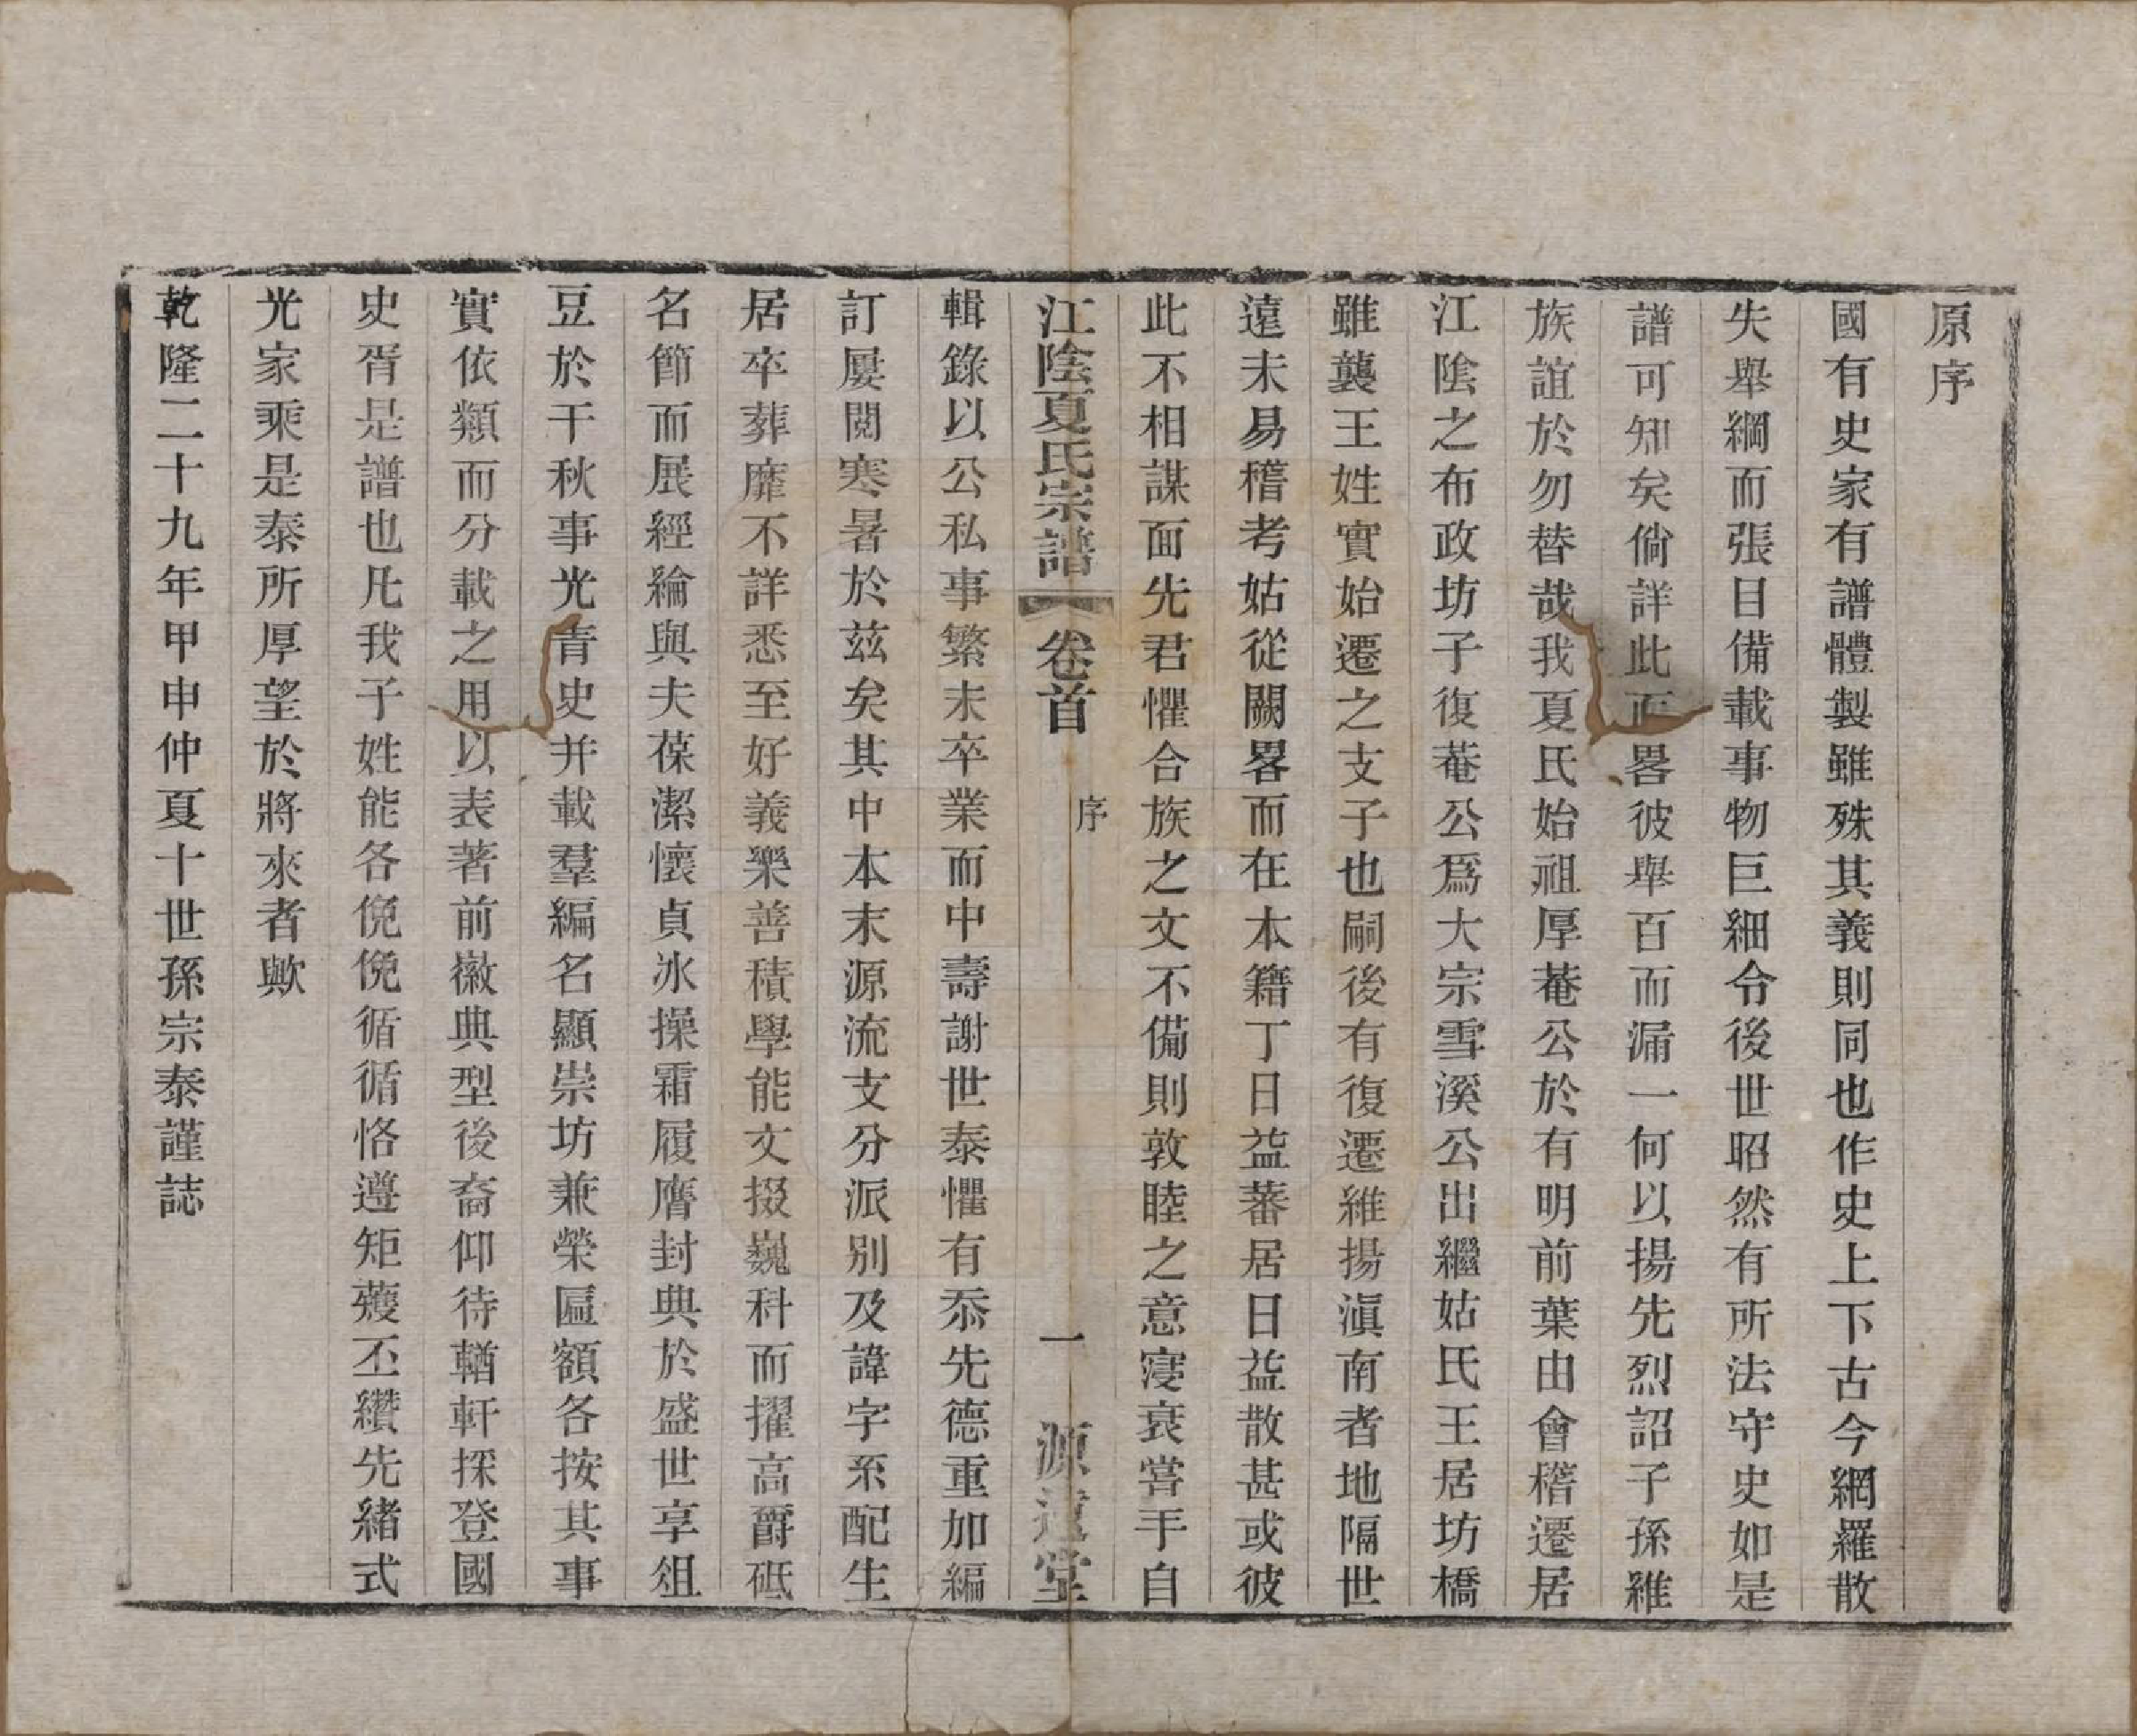 原序
國有史家有譜體製雖殊其義則同也作史上下古今網羅散
失舉綱而張目備載事物巨細令後世昭然有所法守史如是
譜可知矣倘詳此而畧彼舉百而漏一何以揚先烈詔子孫維
族誼於勿替哉我夏氏始祖厚菴公於有明前葉由會稽遷居
江陰之布政坊子復菴公爲大宗雪溪公出繼姑氏王居坊橋
雖襲王姓實始遷之支子也嗣後有復遷維揚滇南者地隔世
遠未易稽考姑從闕畧而在本籍丁日益蕃居日益散甚或彼
此不相謀面先君懼合族之文不備則敦睦之意寖衰嘗手自
江陰夏氏宗譜 卷首 序 一 源遠堂
輯錄以公私事繁未卒業而中壽謝世泰懼有忝先德重加編
訂屢閱寒暑於茲矣其中本末源流支分派別及諱字系配生
居卒葬靡不詳悉至好義樂善積學能文掇巍科而擢高爵砥
名節而展經綸與夫葆潔懷貞冰操霜履膺封典於盛世享俎
豆於千秋事光青史并載羣編名顯崇坊兼榮匾額各按其事
實依類而分載之用以表著前徽典型後裔仰待輶軒採登國
史胥是譜也凡我子姓能各俛俛循循恪遵矩蒦丕纘先緒式
光家乘是泰所厚望於將來者歟
乾隆二十九年甲申仲夏十世孫宗泰謹誌